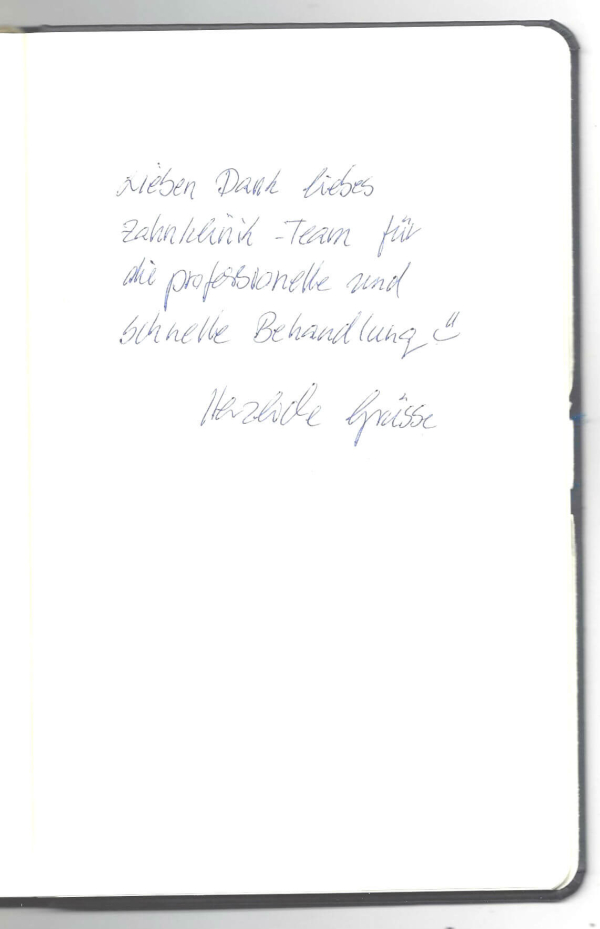 Lieben Dank liebes
Zahnklinik-Team für
die professionelle und
schnelle Behandlung ü
Herzliche Grüsse